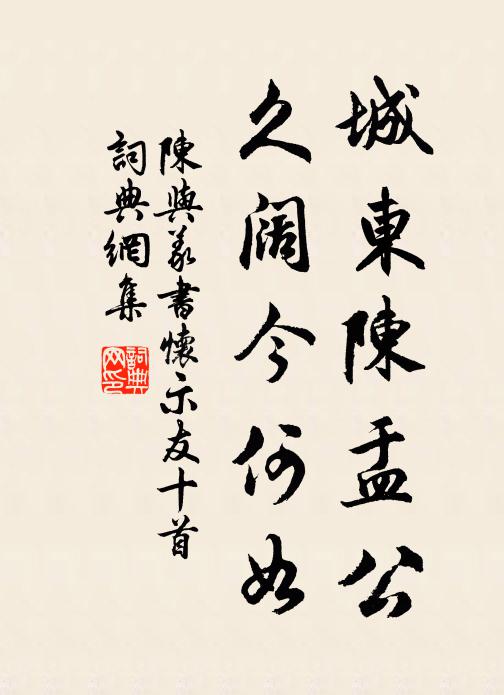 城東陳孟公
久阔今何如
陳與義書懷示友十首
詞典網集
詞典网印